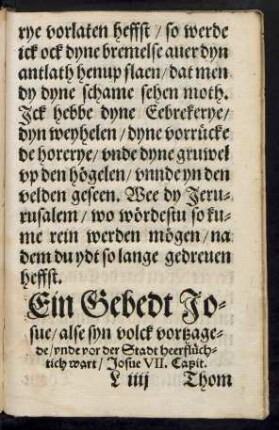 rye vorlaten heffst / so werde
ick ock dyne bremelse auer dyn
antlath henup slaen / dat men
dy dyne schame sehen moth.
Jck hebbe dyne Eebrekerye /
dyn weyhelen / dyne vorrücke
de horerye / vnde dyne gruwel
vp den högelen / vnnde yn den
velden geseen. Wee dy Jeru-
rusalem / wo wördestu so ku-
me rein werden mögen / na
dem du ydt so lange gedreuen
heffst.
Ein Gebedt Jo-
sue / alse syn volck vortzage-
de / vnde vor der Stadt heerflüch-
tich wart / Josue VII. Capit.
L iiij Thom